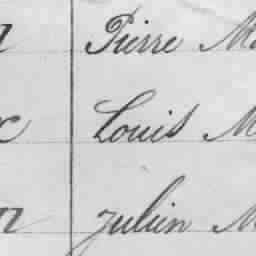 Pierre M
Louis M
Julien M